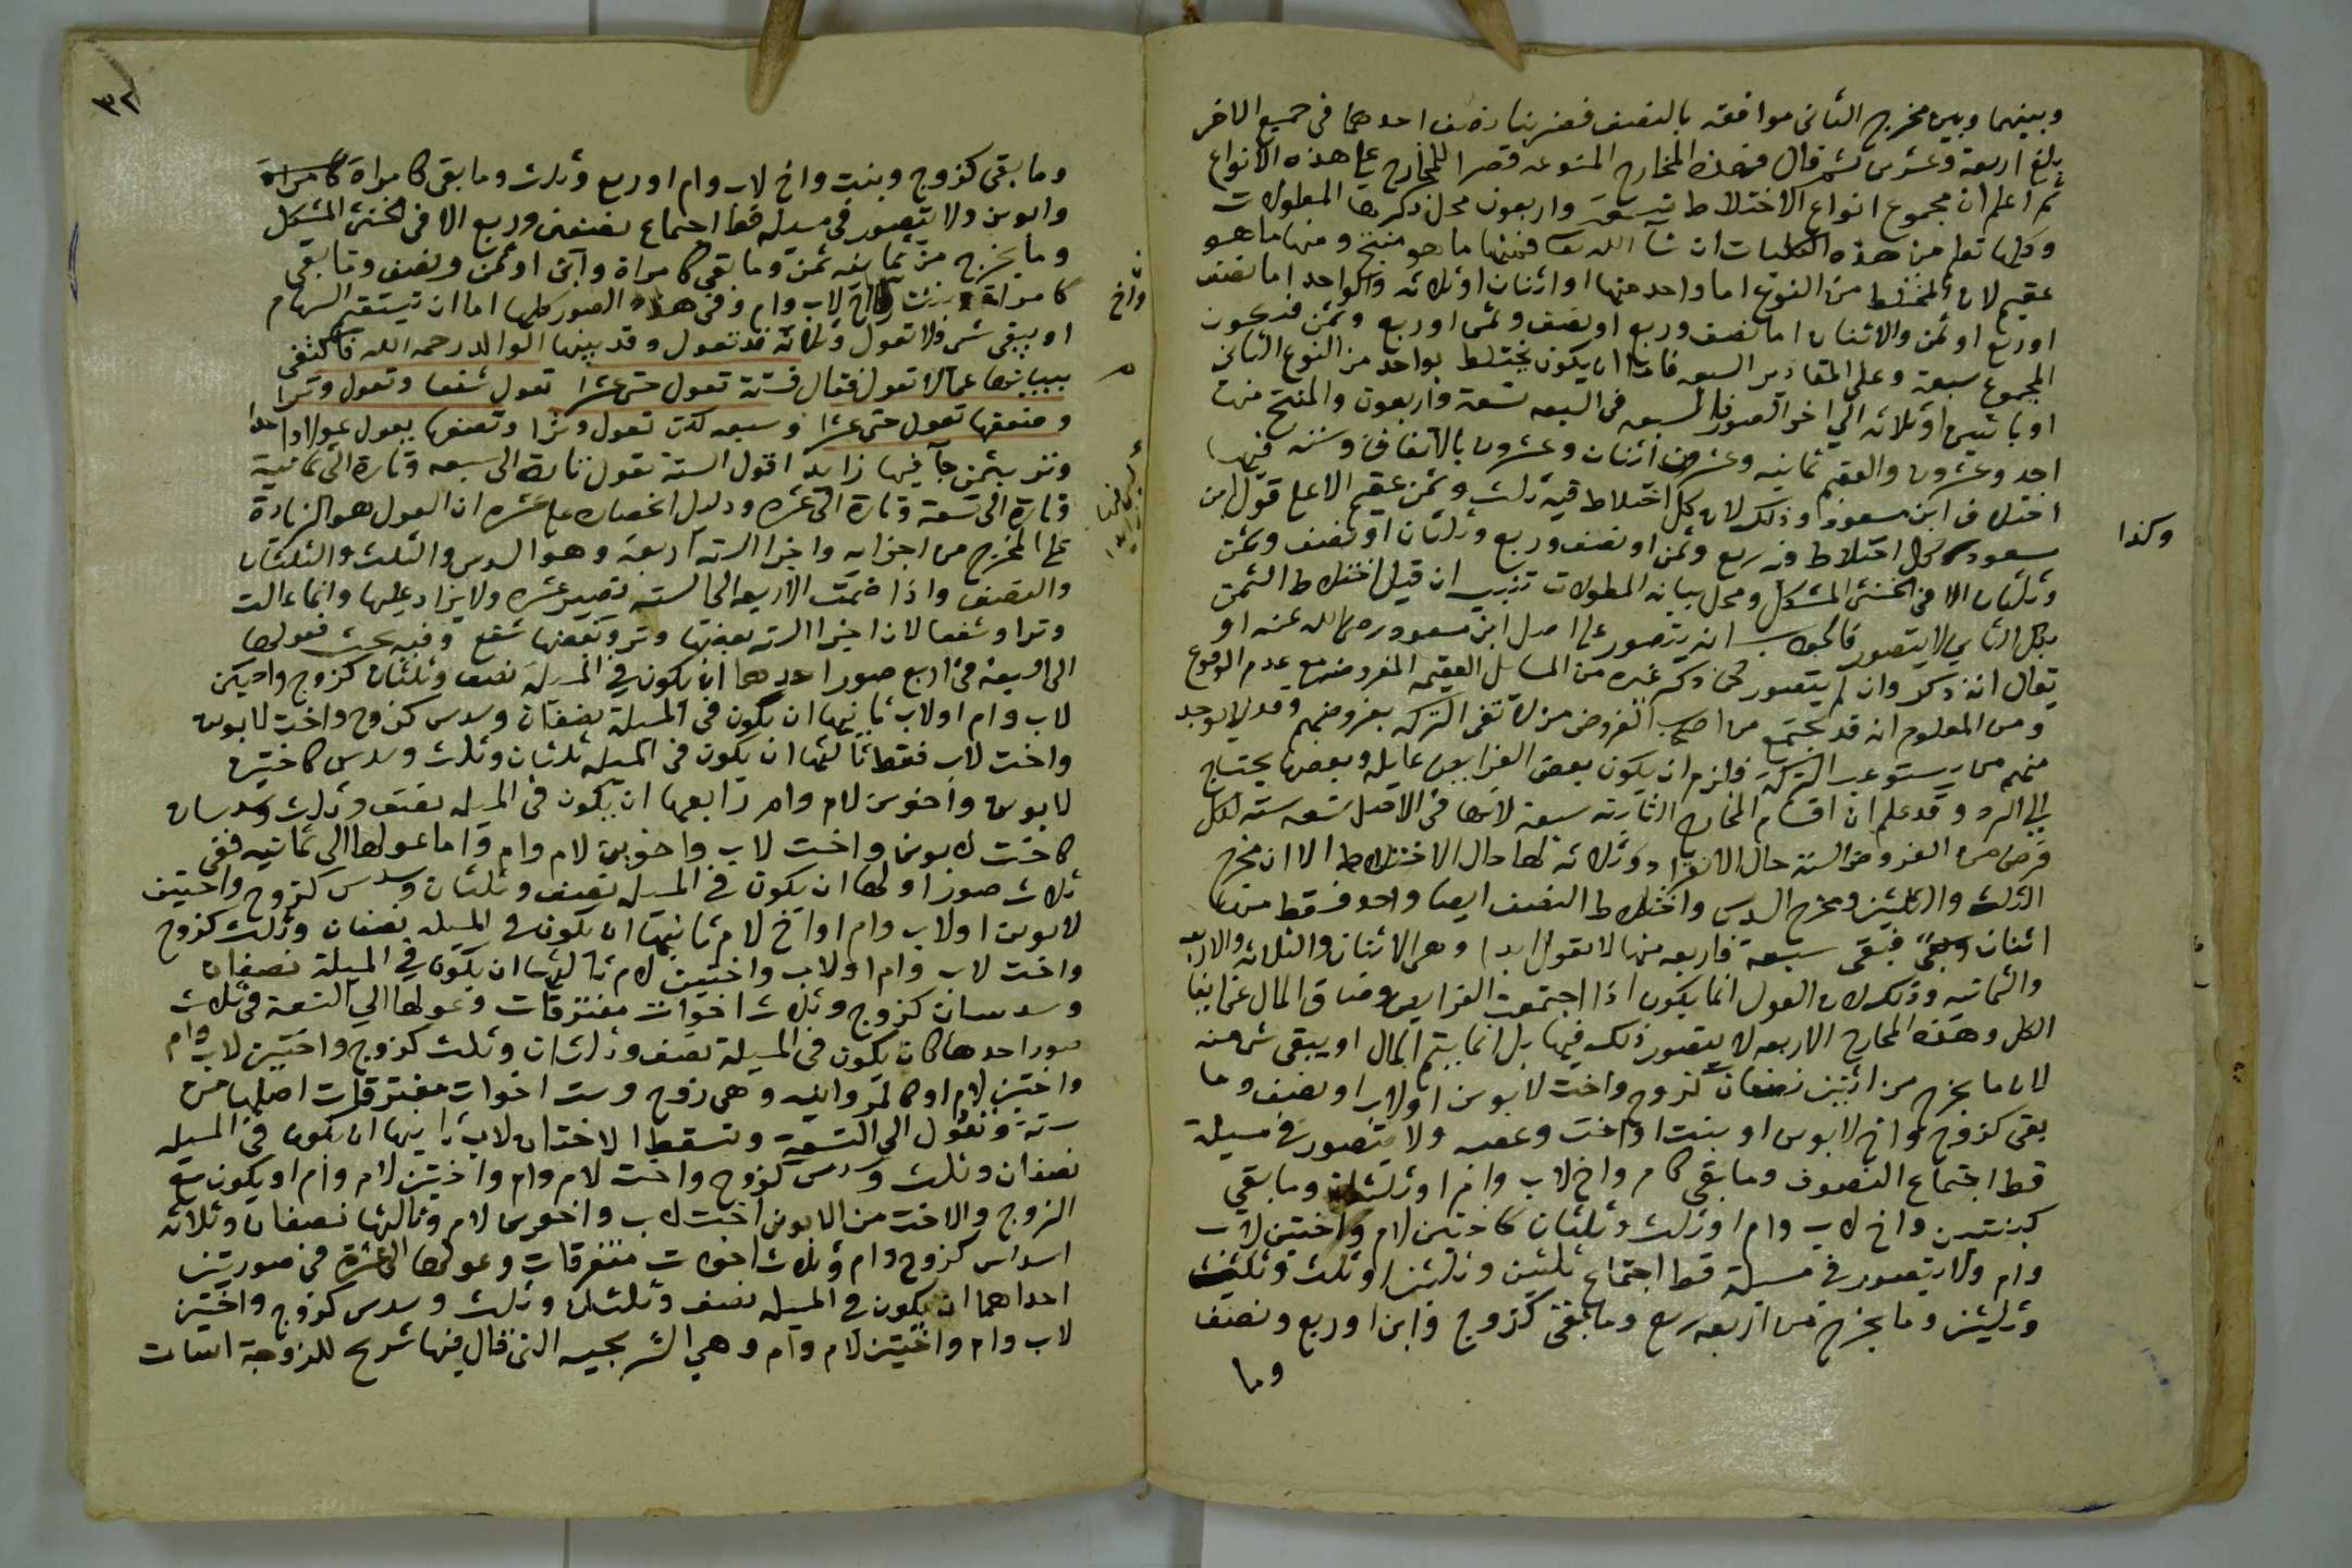 وبينهما وبين مخرج الثانى موافقه بالنصف فضربنا نصف احدهما فى جميع الاخر
بلغ اربعة وعشرين ثم قال فهذه المخارج المنوعه قصرا للمخارج على هذه الانواع
ثم اعلم ان مجموع انواع الاختلاط تسعة واربعون محل ذكرها المطولات
وكلها تعلم من هذه الكليات ان شآ الله تعا فمنها ما هو منتج ومنها ما هو
عقيم لان المختلط من النوع اما واحد منها او اثنان او ثلاثه والواحد اما نصف
او ربع او ثمن والاثنان اما نصف وربع او نصف وثمن او ربع وثمن فيكون
المجموع سبعة وعلى التقادير السبعه فاما ان يكون مختلط بواحد من النوع الثانى
او باثنين او ثلاثه الى اخر الصور السبعه فى السبعه تسعة واربعون والمنتج منها
احد وعشرون والعقيم ثمانيه وعشرون اثنان وعشرون بالاتفاق وسته فيها
اختلاف ابن مسعود وذلك لان كل اختلاط فيه ثلث وثمن عقيم الا على قول ابن
مسعود وكل اختلاط فيه ربع وثمن او نصف وربع وثلثان او نصف وثمن
وكذا
وثلثان الا فى الخنثى المشكل ومحل بيانه المطولات تنبيه ان قيل اختلاط الثمن
بكل الثانى لا يتصور فالجواب انه يتصور على اصل ابن مسعود رضى الله عنه او
يقال انه ذكر وان لم يتصور كما ذكر غيره من المسايل العقيمه المفروضه مع عدم الوقوع
ومن المعلوم انه قد يجتمع من اصحاب الفروض من لا تفى التركه بفروضهم وقد لا يوجد
منهم من يستوعب التركة فلزم ان يكون بعض الفرايض عايله وبعضها يحتاج
الى الرد وقد علم ان اقسام المخارج الثابته سبعة لانها فى الاصل تسعه سته لكل
فرض من الفروض السته حال الانفراد وثلاثه لها حال الاختلاط الا ان مخرج
الثلث والثلثين ومخرج السدس واختلاط النصف ايضا واحد فسقط منها
اثنان فبقى سبعة فاربعه منها لا تعول ابدا وهى الاثنان والثلاثه والاربعه
والثمانيه وذلك لان العول انما يكون اذا اجتمعت الفرايض وضاق المال عن ايفا
الكل وهذه المخارج الاربعه لا يتصور ذلك فيها بل انما يتم المال او يبقى شى منه
لان ما يخرج من اثنين نصفان كزوج واخت لابوين او لاب او نصف وما
بقى كزوج واخ لابوين او بنت او اخت وعصبه ولا يتصور فى مسيلة
قط اجتماع النصوف وما بقى كام واخ لاب وام او ثلثان وما بقى
كبنتين واخ لاب وام او ثلث وثلثان كاختين لام واختين لاب
وام ولا يتصور فى مسيلة قط اجتماع ثلثين وثلثين او ثلث وثلث
وثلثين وما يخرج من اربعه ربع وما بقى كزوج وابن او ربع ونصف
وما
٣٢
وما بقى كزوج وبنت واخ لاب وام او ربع وثلث وما بقى كامراة
وابوين ولا يتصور فى مسيله قط اجتماع نصفين وربع الا فى الخنثى المشكل
وما يخرج من ثمانيه ثمن وما بقى كامراة وابن او ثمن ونصف وما بقى
كامراة وبنت واخ لاب وام وفى هذه الصور كلها اما ان تستقيم السهام
واخ
او يبقى شى ولا تعول وثلاثه قد تعول وقد بينها الوالد رحمه الله فاكتفى
ببيانها عما لا تعول فقال فستة تعول حتى عشرا تعول شفعا وتعول وترا
وضعفها تعول حتى عشرا وسبعه لكن تعول وترا وضعفها يعول عولا واحدا
وتر بثمن جآ فيها زايد اقول الستة تعول تارة الى سبعه وتارة الى ثمانية
وتارة الى تسعة وتارة الى عشره ودليل انحصاره على عشره ان العول هو الزيادة
على المخرج من اجزايه واجزا الستة اربعة وهو السدس والثلث والثلثان
والنصف واذا ضمت الاربعه الى السته تصير عشره ولا يزاد عليها وانما عالت
وترا وشفعا لان اجزا الستة بعضها وتر وبعضها شفع وفيه بحث فعولها
الى السبعة فى اربع صور احدها ان يكون فى المسيلة نصف وثلثان كزوج واختين
لاب وام او لاب ثانيها ان يكون فى المسيلة نصفان وسدس كزوج واخت لابوين
واخت لاب فقط ثالثها ان يكون فى المسيله ثلثان وثلث وسدس كاختين
لابوين واخوين لام وام رابعها ان يكون فى المسيله نصف وثلث وسدسان
كاخت لابوين واخت لاب واخوين لام وام واما عولها الى ثمانيه ففى
ثلاث صور اولها ان يكون فى المسيله نصف وثلثان وسدس كزوج واختين
لابوين او لاب وام او اخ لام ثانيها ان يكون فى المسيله نصفان وثلث كزوج
واخت لاب وام او لاب واختين لام ثالثها ان يكون فى المسيلة نصفان
وسدسان كزوج وثلاث اخوات مفترقات وعولها الى التسعة فى ثلاث
صور احدها كان يكون فى المسيلة نصف وثلثان وثلث كزوج واختين لاب وام
واختين لام او كالمروانيه وهى زوج وست اخوات مفترقات اصلها من
ستة وتعول الى التسعة وتسقط الاختان لاب ثانيها ان يكون فى المسيله
نصفان وثلث وسدس كزوج واخت لام وام واختين لام وام او يكون مع
الزوج والاخت من الابوين اخت لاب واخوين لام وثالثها نصفان وثلاثه
اسداس كزوج وام وثلاث اخوات متفرقات وعولها الى عشرة فى صورتين
احداهما ان يكون فى المسيله نصف وثلثان وثلث وسدس كزوج واختين
لاب وام واختين لام وام وهي الشريحيه التى قال فيها شريح للزوجة اسات